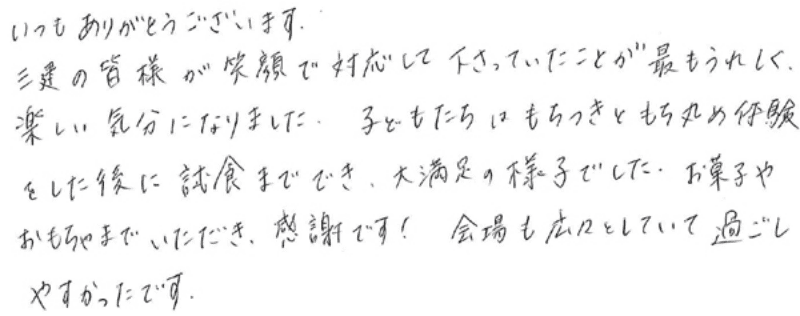 いつもありがとうございます.
三建の皆様が笑顔で対応して下さっていたことが最もうれしく、
楽しい気分になりました. 子どもたちはもちつきともち丸め体験
をした後に試食まででき、大満足の様子でした. お菓子や
おもちゃまでいただき、感謝です! 会場も広々としていて過ごし
やすかったです.